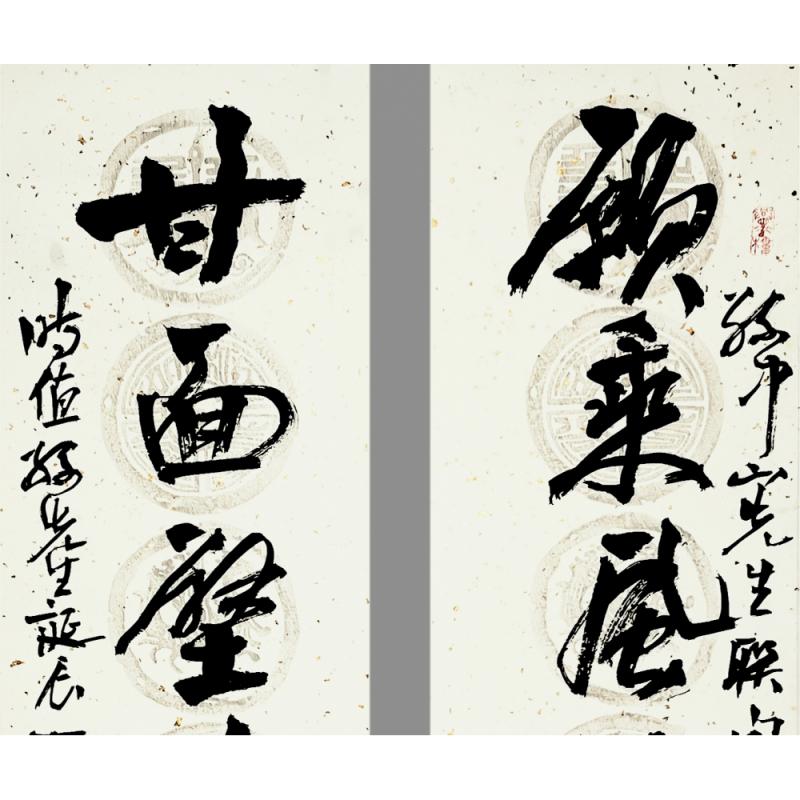 孫中山先生聯
願乘風
甘面壁
時值孫先生誕辰